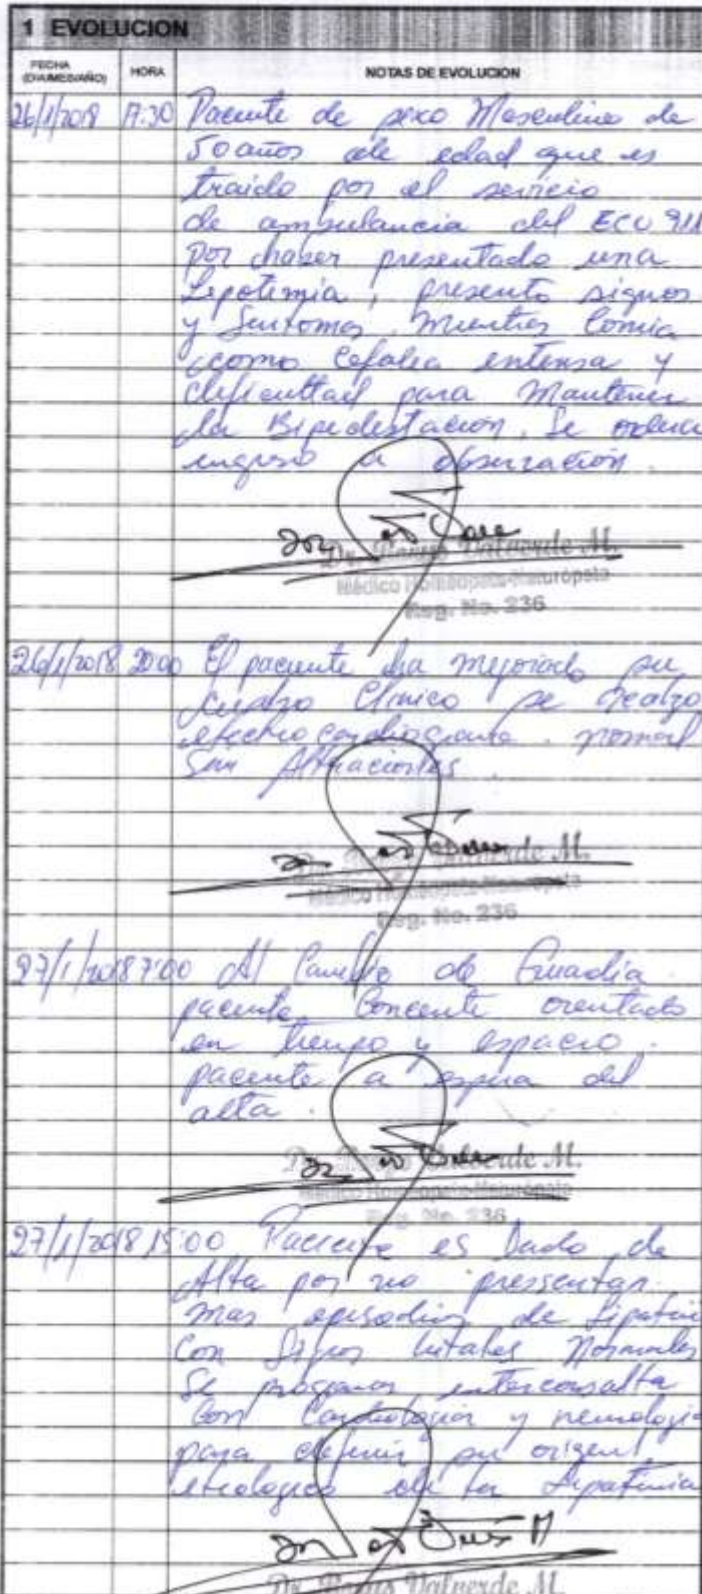 1 EVOLUCION
FECHA (DIA/MES/AÑO) HORA NOTAS DE EVOLUCION
26/1/2018 17:30 Paciente de sexo Masculino de
50 años de edad que es
traido por el servicio
de ambulancia del ECU 911
por haber presentado una
Lipotimia, presento signos
y Sintomas Mientras Comia
como Cefalea intensa y
dificultad para Mantener
la Bipedestacion. Se ordena
ingreso a observación.
Dr. Valverde M.
Médico Homeópata-Naturópata
Reg. No. 236
26/1/2018 20:00 El paciente ha mejorado su
cuadro Clinico se realizo
electrocardiograma. normal
Sin Alteraciones.
M.
Reg. No. 236
27/1/2018 7:00 Al Cambio de Guardia.
paciente Conciente orientado
en tiempo y espacio.
paciente a espera del
alta.
Dr. Valverde M.
Médico Homeópata-Naturópata
Reg. No. 236
27/1/2018 15:00 Paciente es Dado de
Alta por no pressentar.
mas episodios de Lipotimi
Con Signos Vitales Normales
Se programa interconsulta
Con Cardiologia y neurologia
para definir su origen
etiologico de la Lipotimia
Dr. Valverde M.